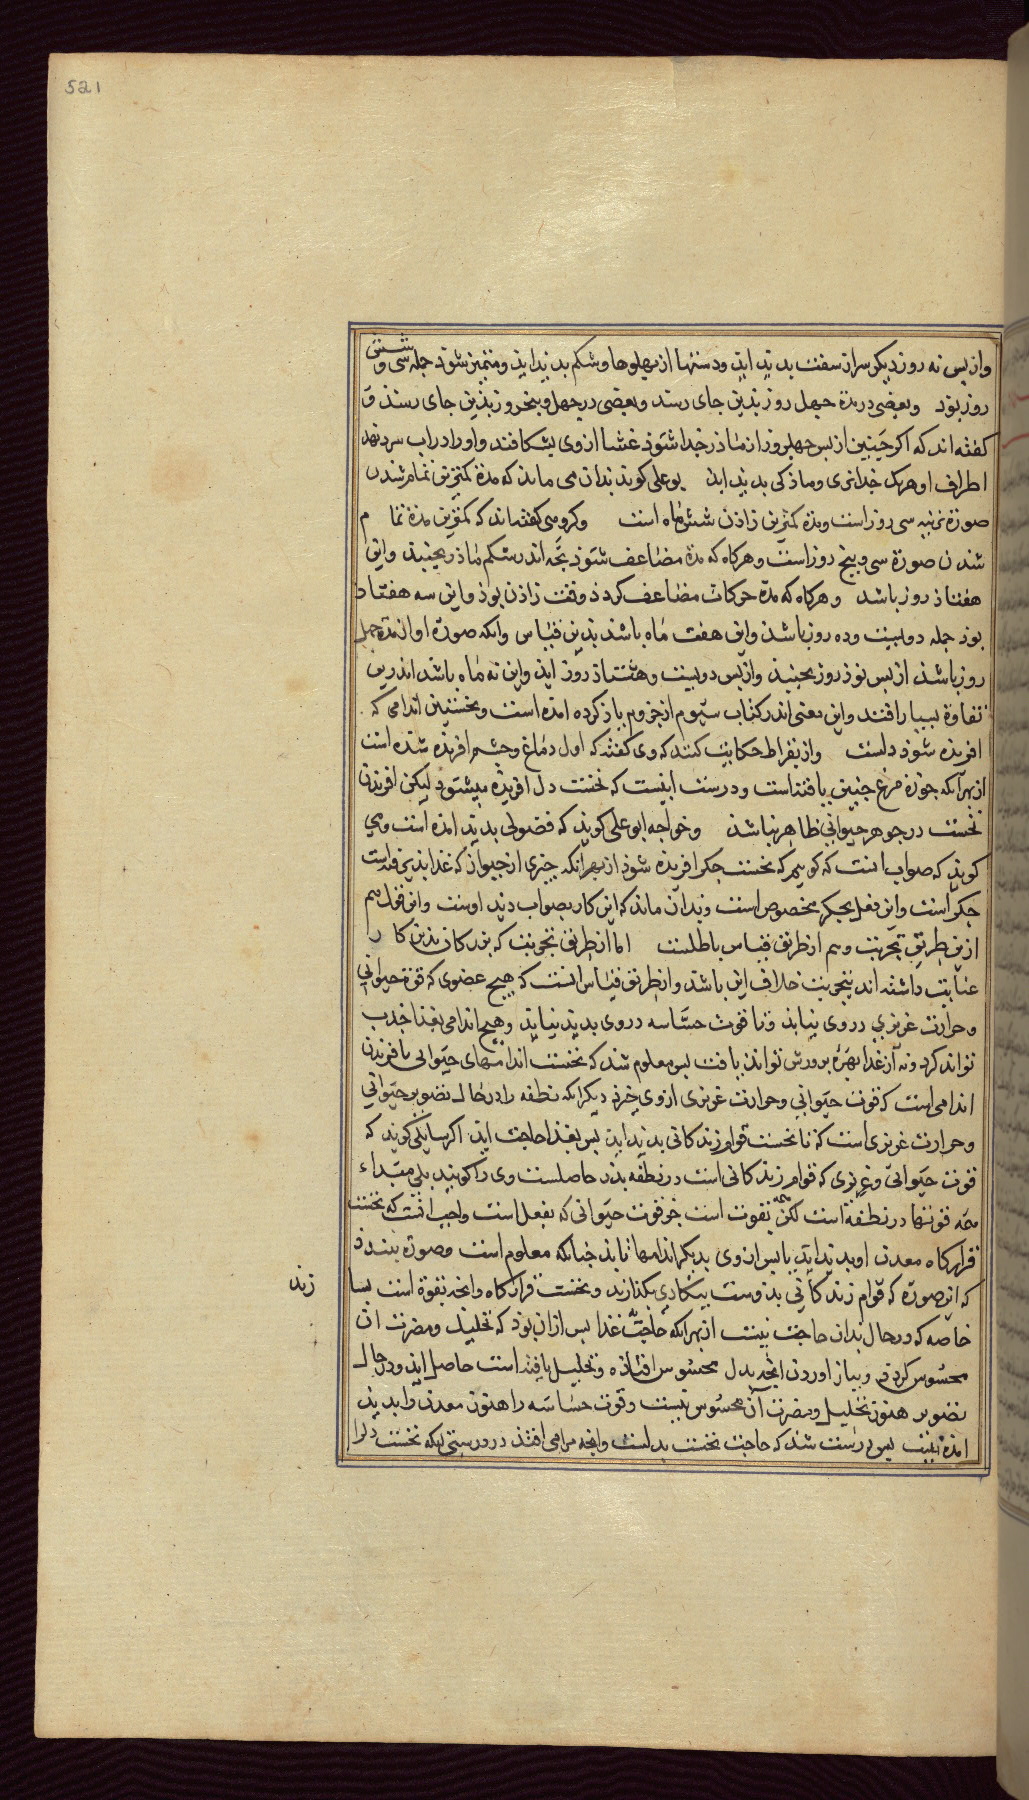 521
واز پس نه روز دیکر سر از سفت بدید آید و دستها از پهلوها و شکم بدید آید و متمیز شود جمله سی و شش
روز بود و بعضی در مدة چهل روز بدین جای رسد و بعضی در چهل و پنج روز بدین جای رسد و
کفته اند که اکر جنین از پس چهل روز از ماذر جدا شود غشا از وی بشکافند و او را در آب سرد نهند
اطراف او هر یک جدا نری و ماذکی بدید آید بوعلی کوید بدان می ماند که مدة کمترین تمام شدن
صورة نرینه سی روز است و مدة کمترین زادن شش ماه است و کروهی کفته اند که کمترین مدة تما م
شدن صورة سی و پنج روز است و هرکاه که مدة مضاعف شود بچه اندر شکم ماذر بجنبد و این
هفتاذ روز باشد و هرکاه که مدة حرکات مضاعف کردد وقت زادن بوذ و این سه هفتاد
بود جمله دویست و ده روز باشد و این هفت ماه باشد بدین قیاس و آنکه صورة او از مدة چهل
روز باشد از پس نوذ روز بجنبد و از پس دویست و هشتاذ روز آید و این نه ماه باشد اندرین
تفاوة بسیار افتد و این معنی اندر کتاب سیوم از جزو دوم یاذ کرده امده است و نخستین اندامی که
افریده شوذ دلست و از بقراط حکایت کنند که وی کفته که اول دماغ و چشم افریده شده است
از بهر آنکه جوزة مرغ چنین یافته است و درست اینست که نخست دل افریده میشود لیکن افریدن
نخست در جوهر حیوانی ظاهر نباشد و خواجه ابو علی کوید که فضولی بدید امده است و می
کوید که صواب انست که کوییم که نخست جکر افریده شوذ از بهر آنکه چیزی از حیوان که غذا بدین است
جکر است و این فعل بجکر مخصوص است و بدان ماند که این کار بصواب دید اوست و این قول هم
ازین طریق تجربت و هم از طریق قیاس باطلست اما از طریق تجربت که بزرکان بدین کا ر
عنایت داشته اند بتجربت خلاف این باشد و از طریق قیاس انست که هیچ عضوی که قوة حیوانی
و حرارت غریزی در وی نیابذ و تا قوت حساسه در وی بدید نیاید و هیچ اندامی بغذا جذب
نتواند کرد و نه از غذا بهره پرورش تواند یافت پس معلوم شد که نخست اندامهای حیوانی بافریدن
اندامی است که قوت حیوانی و حرارت غریزی از وی خیزد دیکر آنکه نطفه را در حال تصویر حیوانی
و حرارت غریزی است که تا نخست قوام زندکانی بدید آید پس بغذا حاجت آید اکر سائلی کوید که
قوت حیوانی و غریزی که قوام زندکانی است در نطفه بدر حاصلست وی را کویند بلی مبتداء
همه قوتها در نطفه است لکن همه بقوت است جز قوت حیوانی که بفعل است واجب انست که نخست
قرارکاه معدن او بدید آید تا پس از وی بدیکر اندامها تابد چنانکه معلوم است و صورة نبندد
که این صورة که قوام زندکانی بدوست بیکاری بکذارند و نخست قرارکاه و آنچه بقوة است بسا
زند
خاصه که در حال بدان حاجت نیست از بهر آنکه حاجت غذا پس از ان بوذ که تحلیل و مضرت ان
محسوس کردد و بباز اوردن آنچه بدل محسوس افتاذه و تحلیل یافته است حاصل آید و در حال
تصویر هنوز تحلیل و مضرت آن محسوس نیست و قوت حساسه را هنوز معدن و ا بدید
امده نیست پس درست شد که حاجت نخست بدلست و آنچه مرا می افتد در درستی آنکه نخست دل را